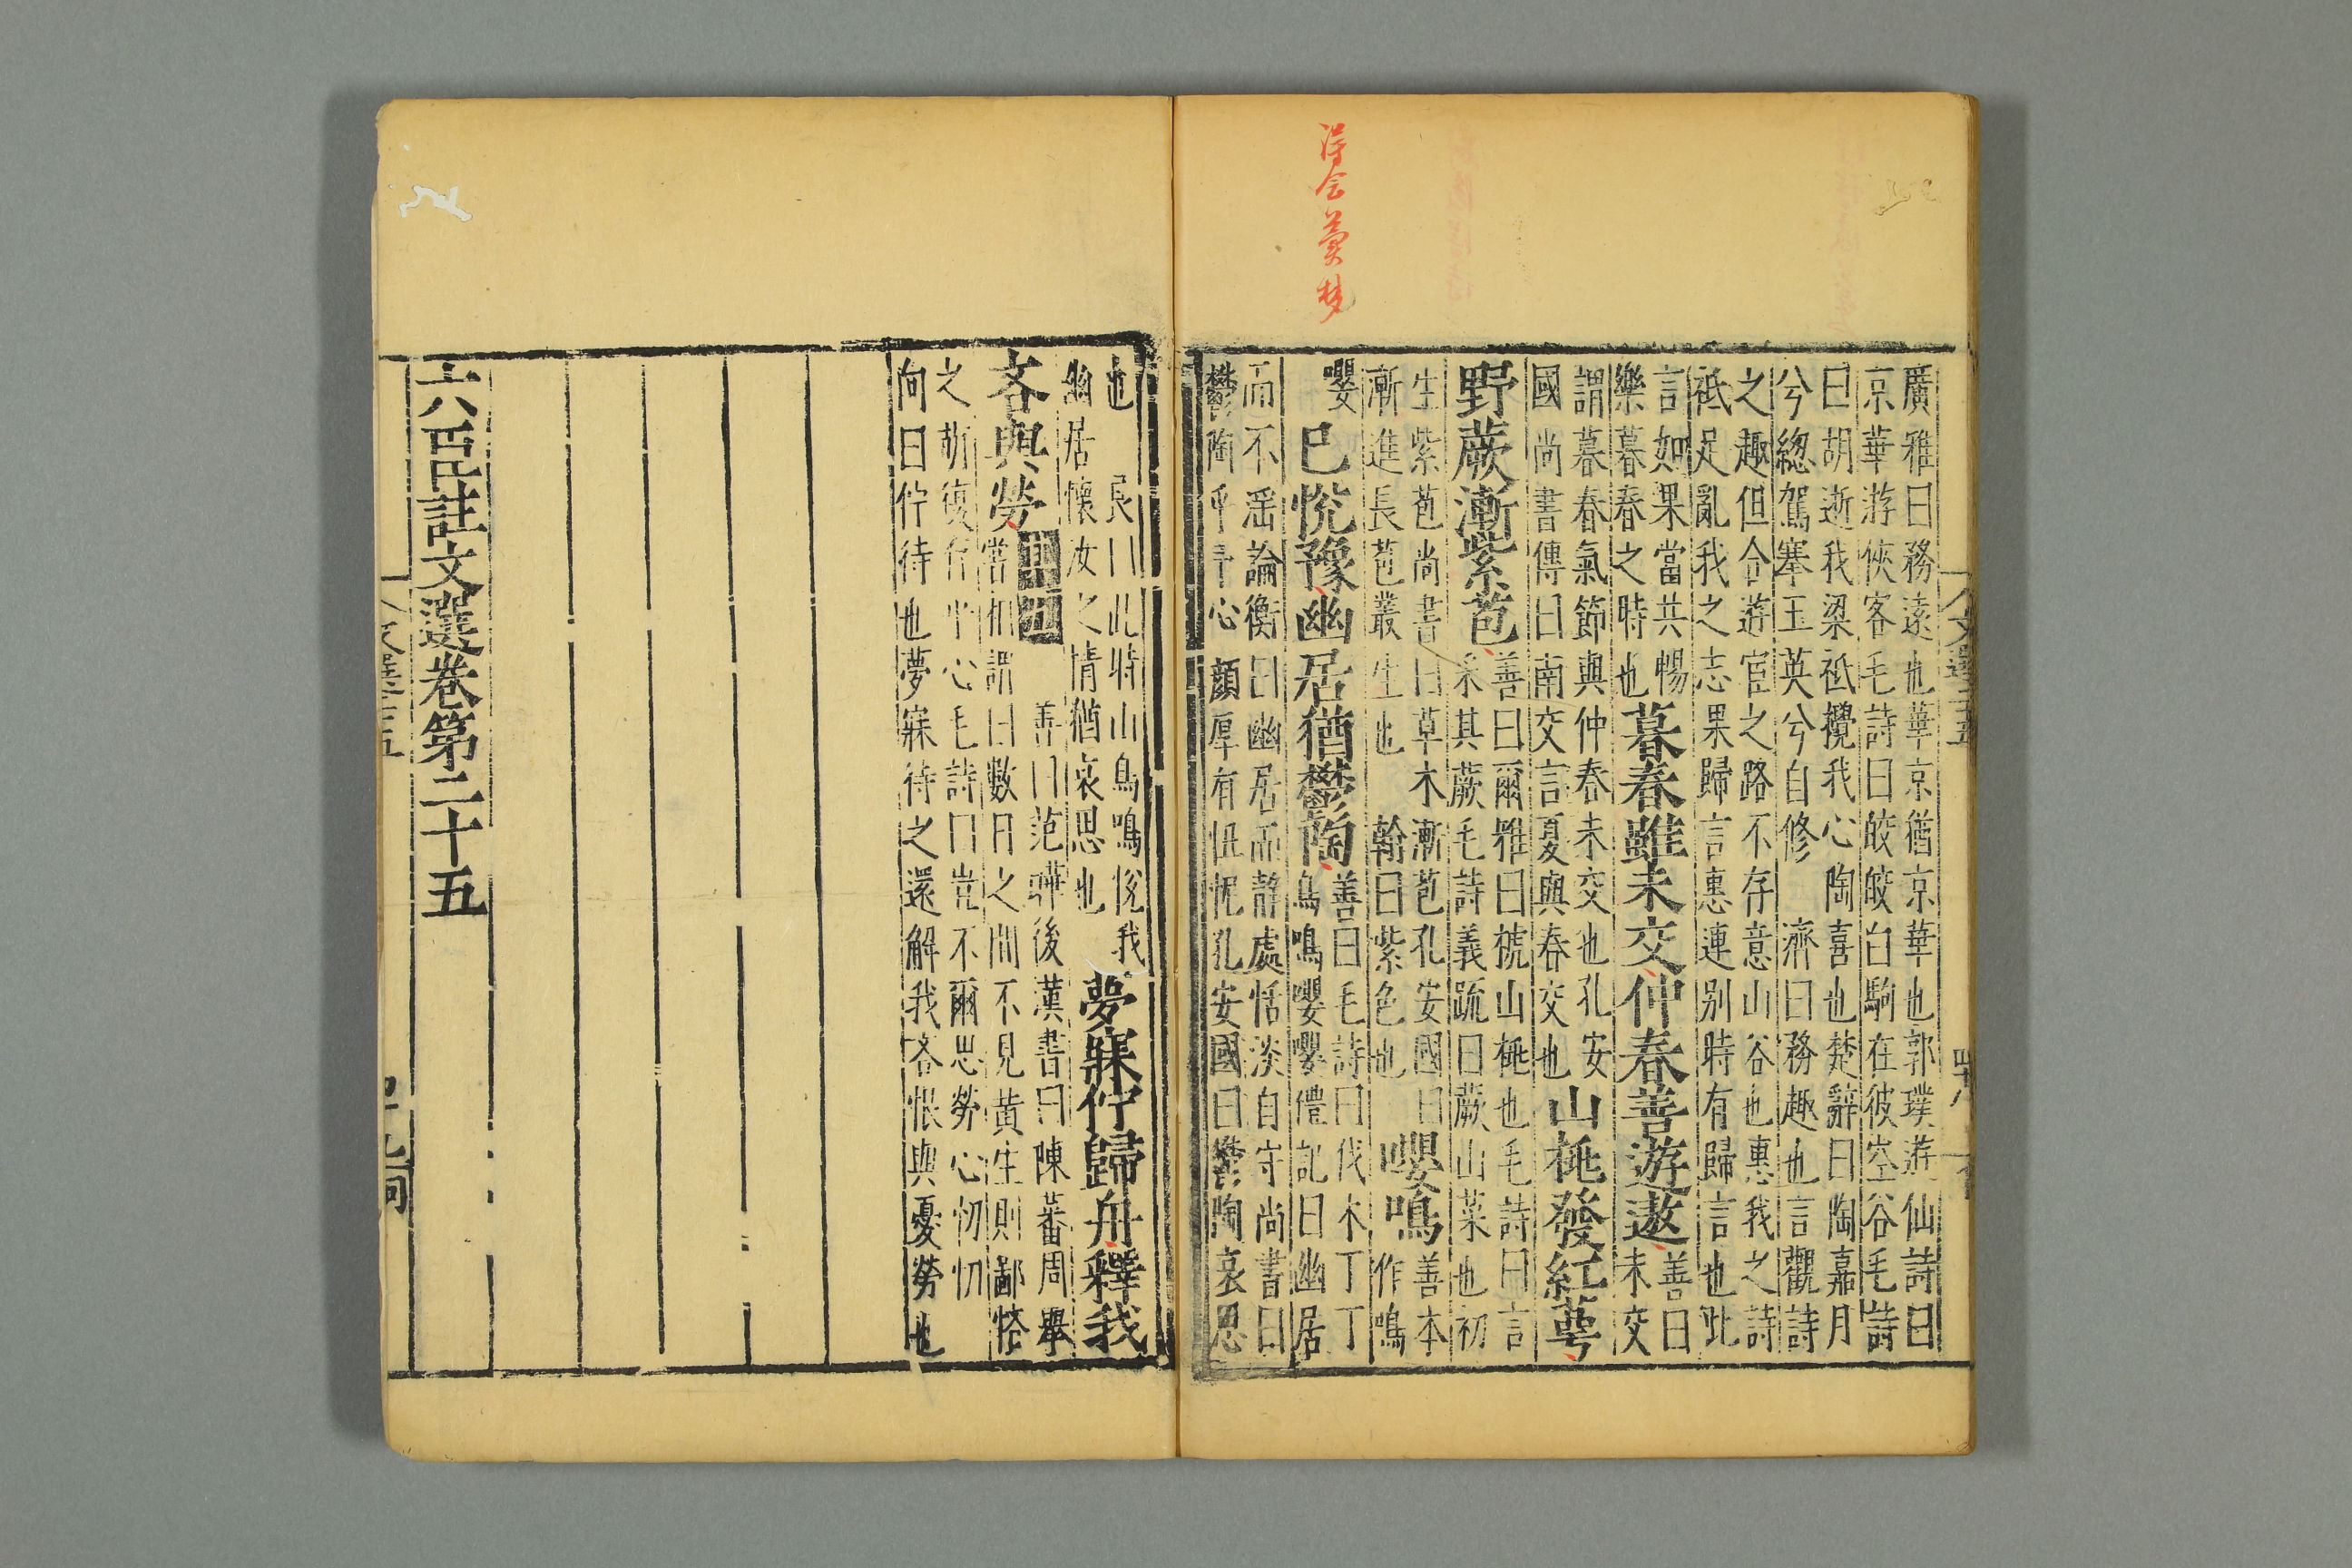 廣雅曰務遠也華京猶京華也郭璞遊仙詩曰
京華游俠客毛詩曰皎皎白駒在彼空谷毛詩
曰胡逝我梁祗攪我心陶喜也楚辭曰陶嘉月
兮總駕搴玉英兮自修 濟曰務趣也言觀詩
之趣但合遊宦之路不存意山谷也惠我之詩
祗足亂我之志果歸言惠連别時有歸言也此
言如果當共暢
樂暮春之時也
暮春雖未交仲春善遊遨
善曰
未交
謂暮春春氣節與仲春未交也孔安
國尚書傳曰南交言夏與春交也
山桃發紅萼
野蕨漸紫苞
善曰爾雅曰榹山桃也毛詩曰言
采其蕨毛詩義疏曰蕨山菜也初
生紫苞尚書曰草木漸苞孔安國曰
漸進長苞叢生也 翰曰紫色也
嚶鳴
善本
作鳴
嚶
已悅豫幽居猶鬱陶
善曰毛詩曰伐木丁丁
鳥鳴嚶嚶禮記曰幽居
而不淫論衡曰幽居而靜處恬淡自守尚書曰
鬱陶乎予心顔厚有忸怩孔安國曰鬱陶哀思
也 良曰此時山鳥鳴悅我
幽居懷汝之情猶哀思也
夢寐佇歸舟釋我
吝與勞
善曰范曄後漢書曰陳蕃周舉
嘗相謂曰數日之間不見黄生則鄙悋
之萌復存乎心毛詩曰豈不爾思勞心忉忉
向曰佇待也夢寐待之還解我吝恨與憂勞也
六臣註文選卷第二十五